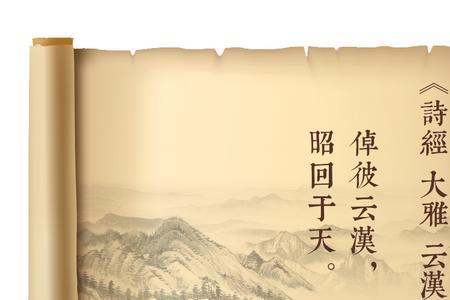 《詩經 大雅 云漢
倬彼云漢，
昭回于天。